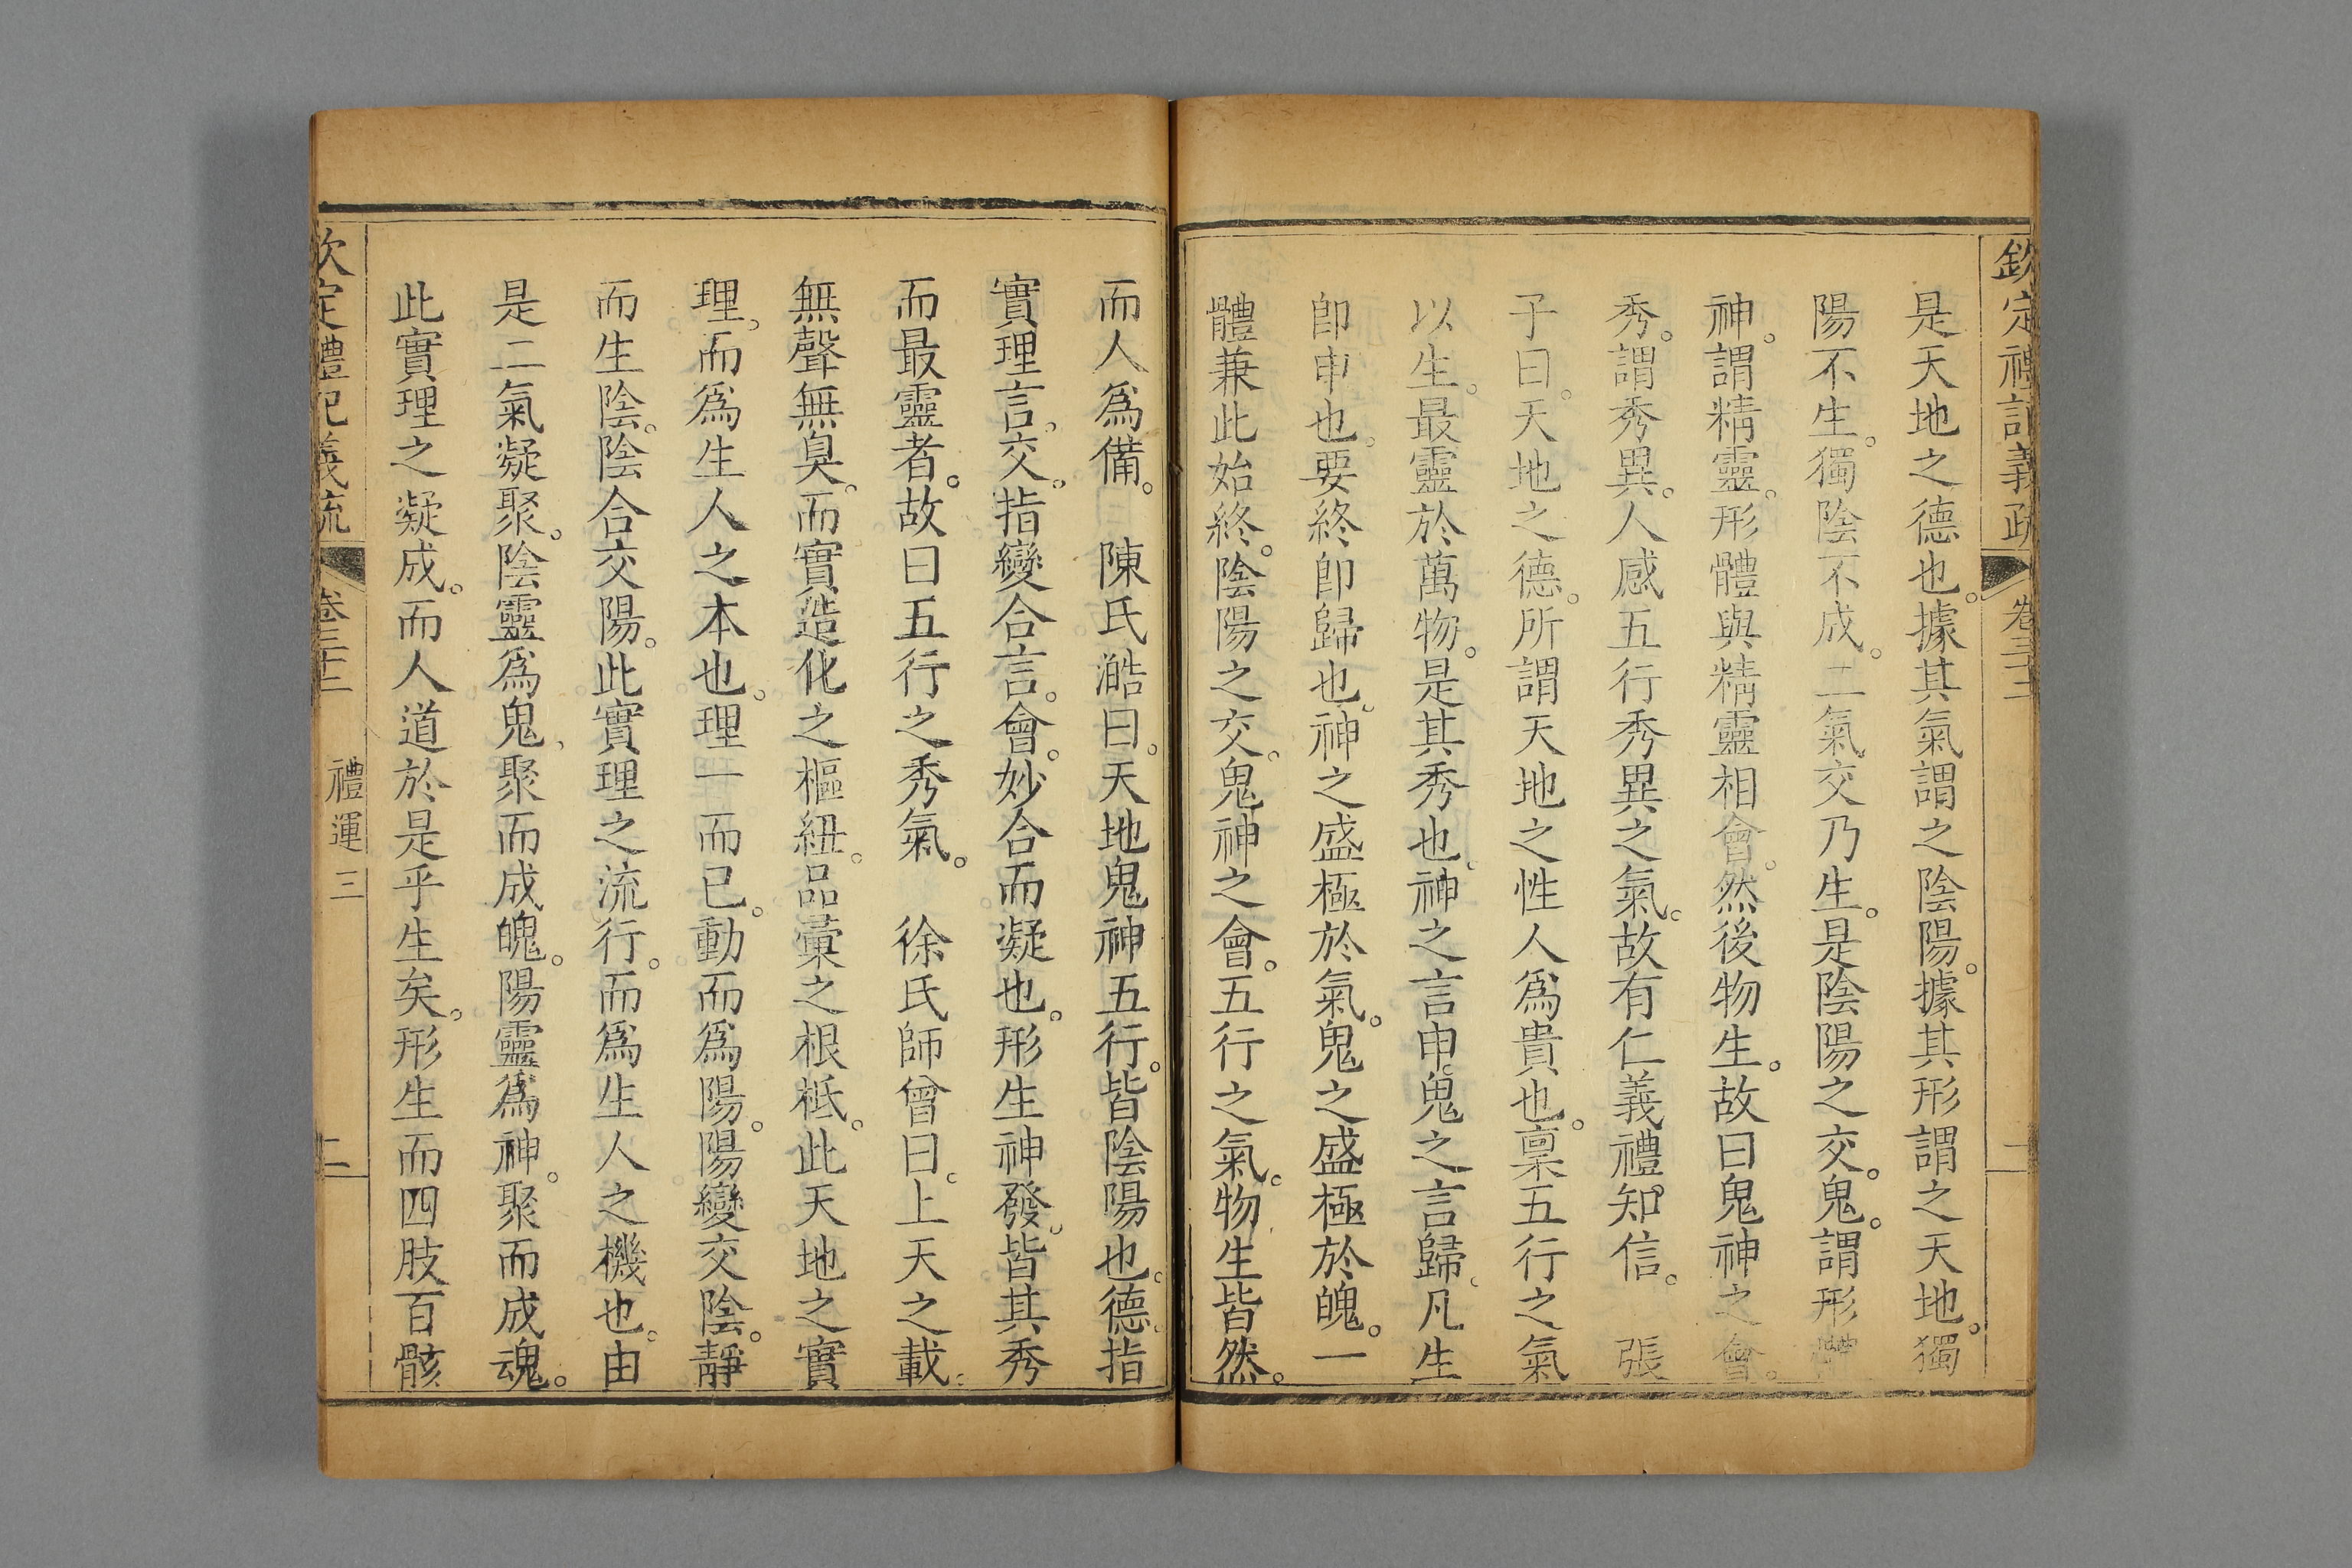 欽定禮記義疏 卷三十二 一
是天地之德也。據其氣謂之陰陽。據其形謂之天地。獨
陽不生。獨陰不成。二氣交乃生。是陰陽之交。鬼。謂形體
神。謂精靈。形體與精靈相會。然後物生。故曰鬼神之會。
秀。謂秀異。人感五行秀異之氣。故有仁義禮知信。 張
子曰。天地之德。所謂天地之性人為貴也。稟五行之氣
以生。最靈於萬物。是其秀也。神之言申。鬼之言歸。凡生
即申也。要終即歸也。神之盛極於氣。鬼之盛極於魄。一
體兼此始終。陰陽之交。鬼神之會。五行之氣。物生皆然。
而人為備。 陳氏澔曰。天地鬼神五行。皆陰陽也。德。指
實理言。交。指變合言。會。妙合而凝也。形生神發。皆其秀
而最靈者。故曰五行之秀氣。 徐氏師曾曰。上天之載。
無聲無臭。而實造化之樞紐。品彙之根柢。此天地之實
理。而為生人之本也。理一而已。動而為陽。陽變交陰。靜
而生陰。陰合交陽。此實理之流行。而為生人之機也。由
是二氣凝聚。陰靈為鬼、聚而成魄。陽靈為神。聚而成魂。
此實理之凝成。而人道於是乎生矣。形生而四肢百骸
欽定禮記義疏 卷三十二 禮運三 二